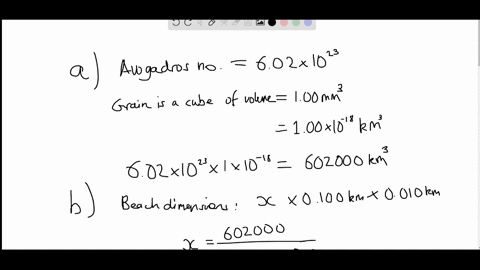 a) Avogadros no. = 6.02×10²³
Grain is a cube of volume = 1.00mm³
= 1.00×10⁻¹⁸ km³
6.02×10²³×1×10⁻¹⁸ = 602000 km³
b) Beach dimensions: x × 0.100 km × 0.010 km
x = 602000